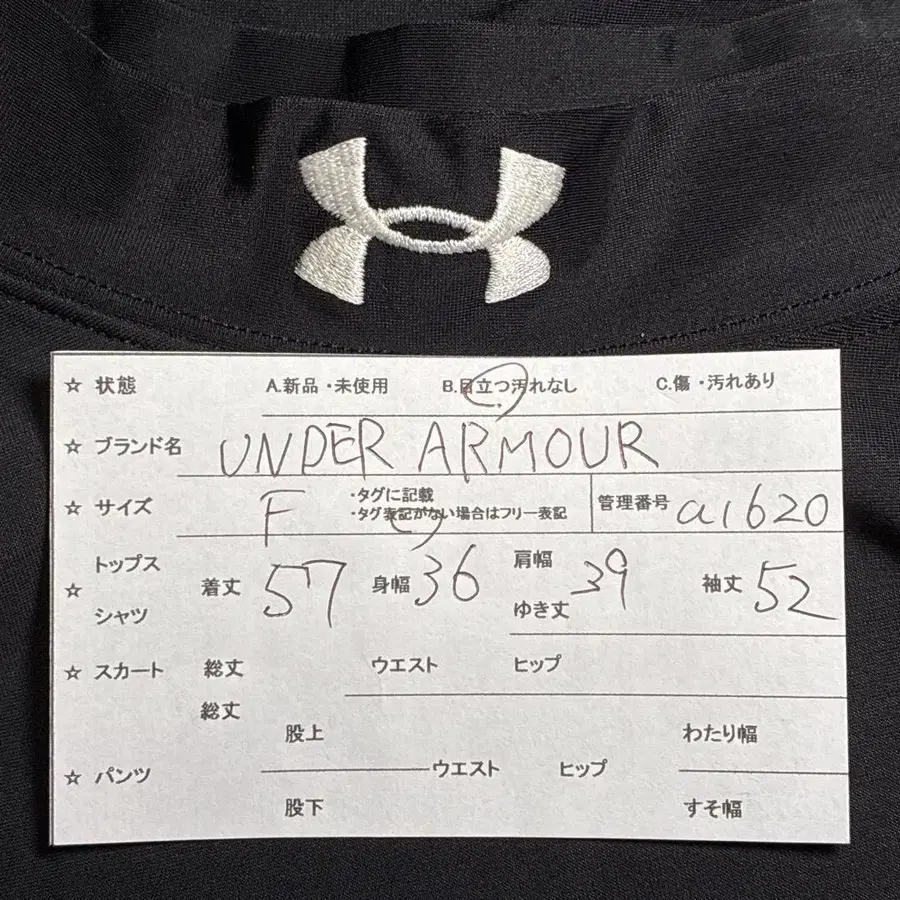 ☆ 状態 A.新品・未使用 B.目立つ汚れなし C.傷・汚れあり
☆ ブランド名 UNDER ARMOUR
☆ サイズ F ・タグに記載 管理番号 a1620
・タグ表記がない場合はフリー表記
トップス 肩幅
☆ 着丈 57 身幅 36 39 袖丈 52
シャツ ゆき丈
☆ スカート 総丈 ウエスト ヒップ
総丈
股上 わたり幅
☆ パンツ ウエスト ヒップ
股下 すそ幅